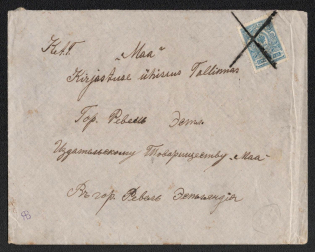 K.t.T. „Maa“
Kirjastuse ühisus Tallinnas
Гор. Ревель Эстл.
Издательскому Товариществу „Маа“
Въ гор. Ревель Эстляндія